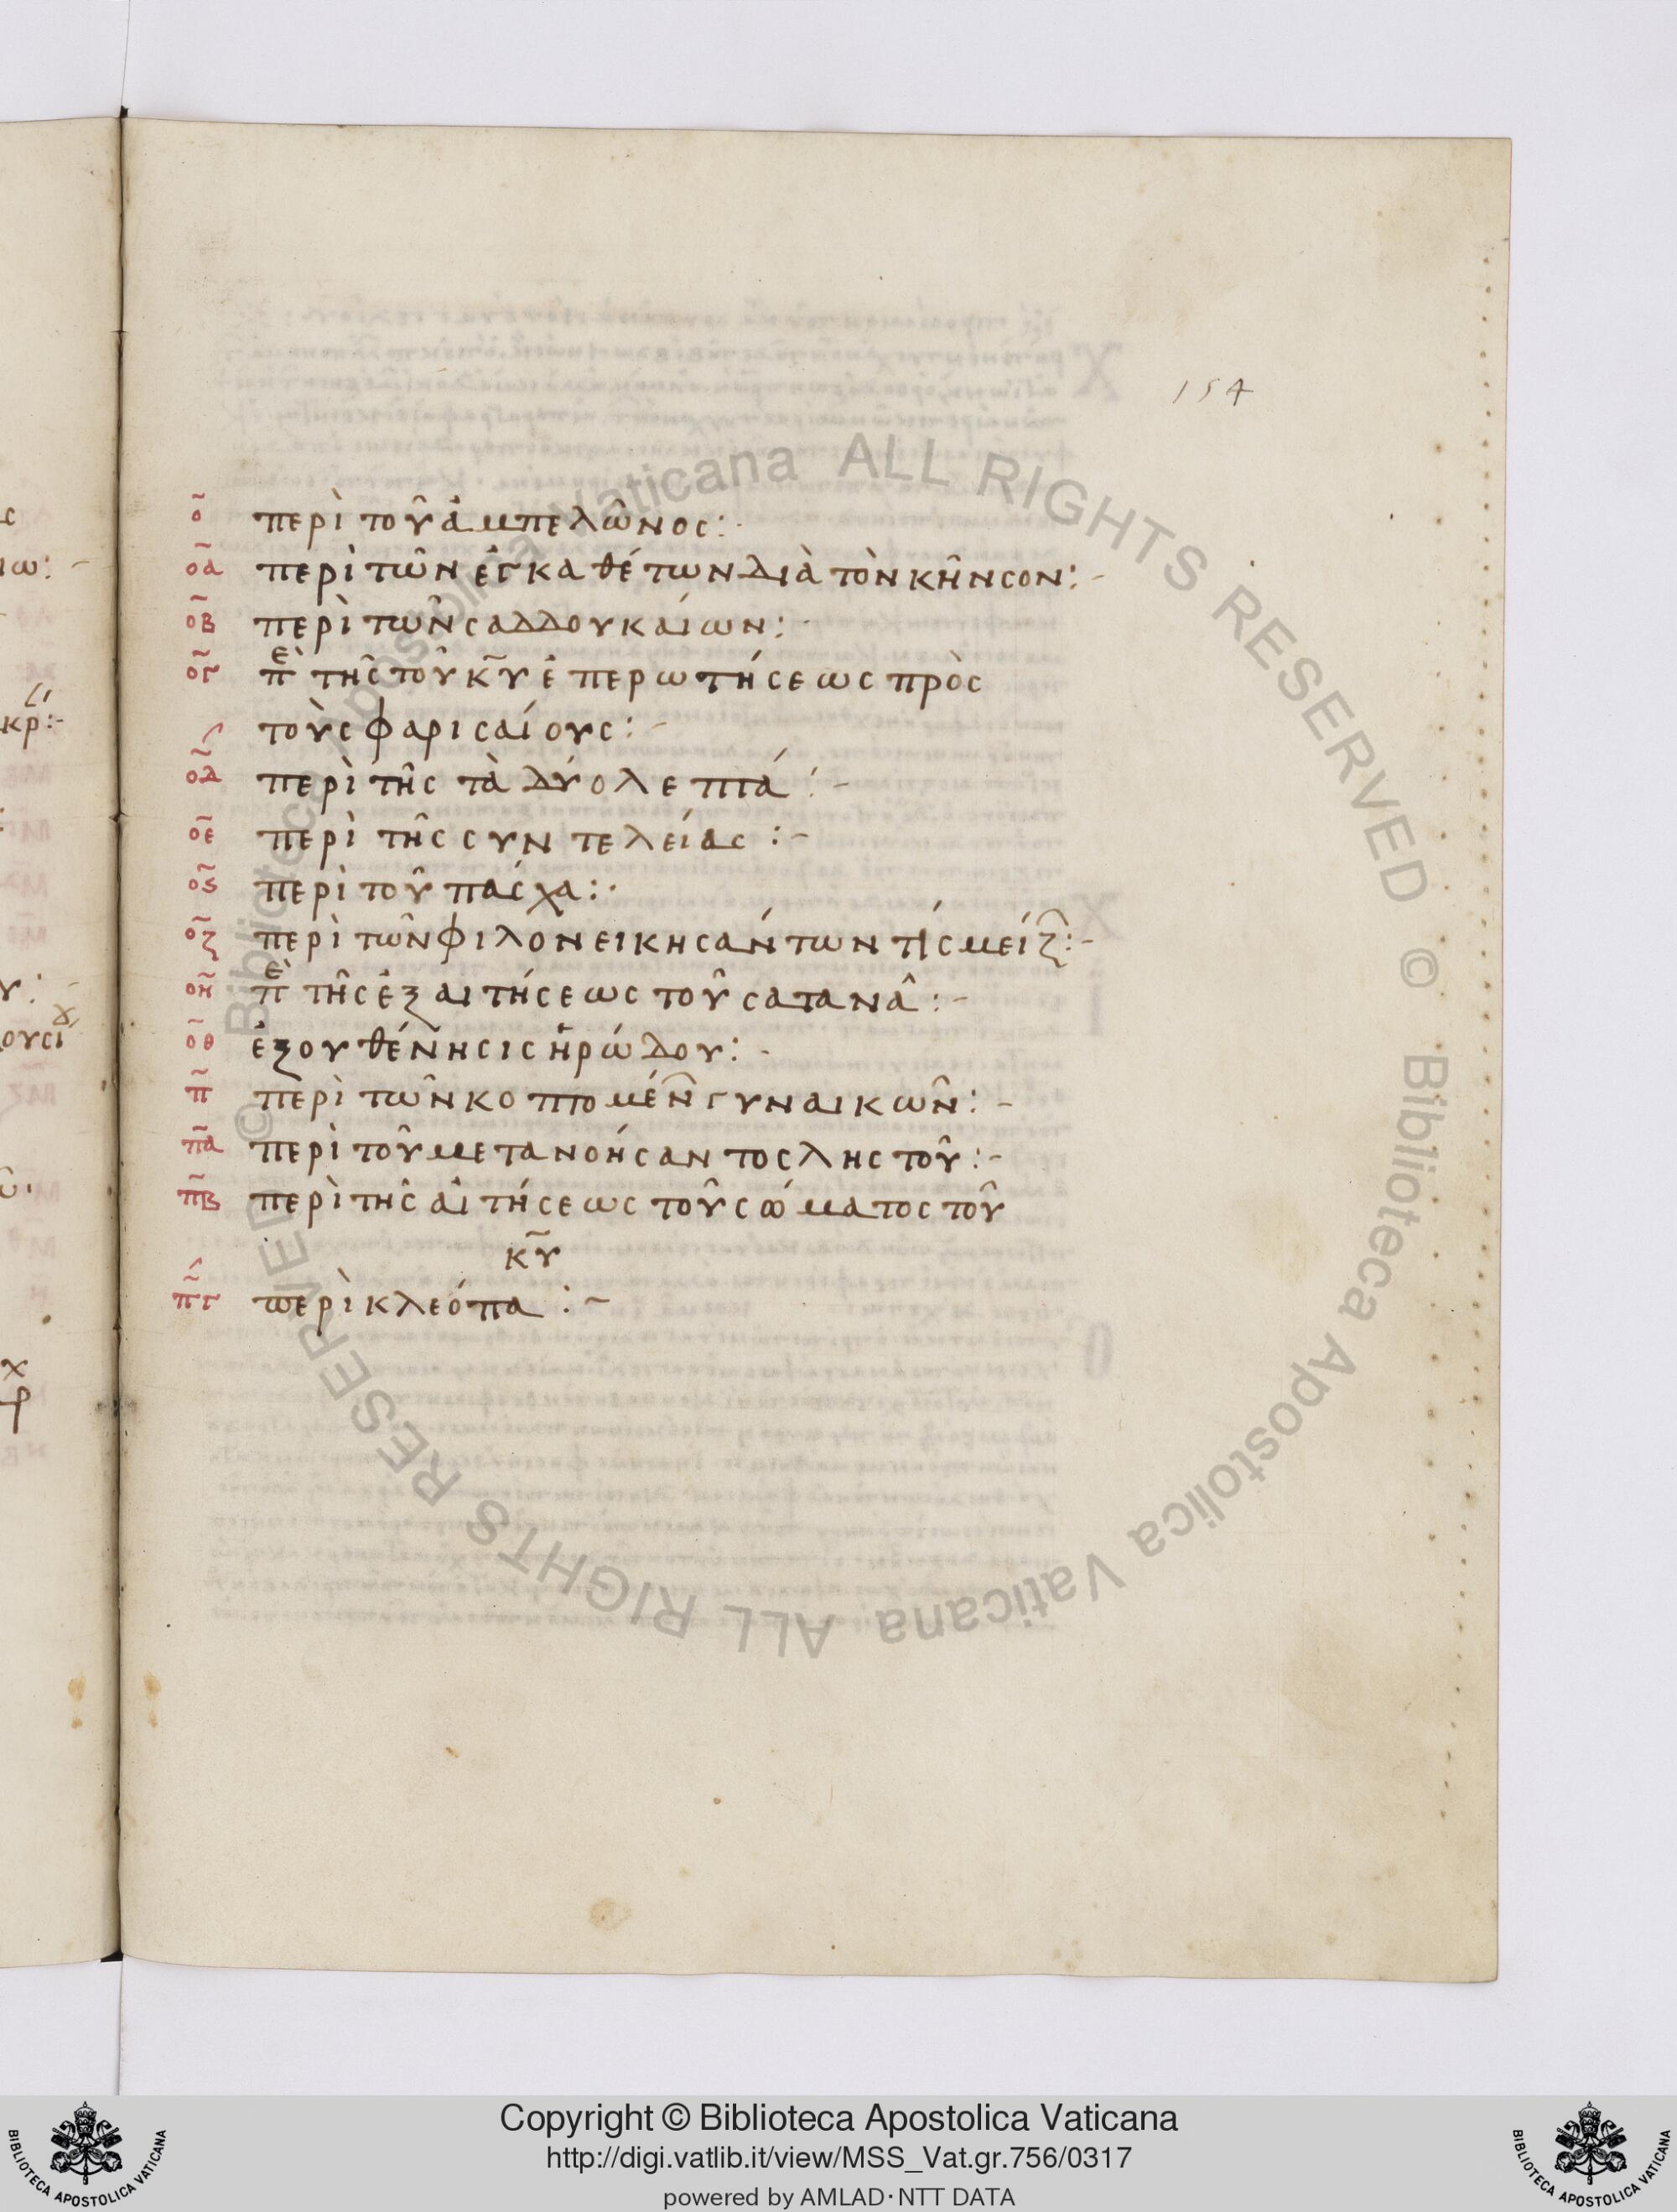 154
ο̃ περὶ τοῦ ἀμπελῶνος:
ο̃α περὶ τῶν ἐγκαθέτων διὰ τὸν κῆνσον:-
ο̃β περὶ τῶν σαδδουκαίων:
ο̃γ πὲ τῆς τοῦ κ̃υ ἐπερωτήσεως πρὸς
τοὺς φαρισαίους:-
ο̃δ περὶ τῆς τὰ δύο λεπτά:-
ο̃ε περὶ τῆς συντελείας:-
ο̃ς περὶ τοῦ πάσχα:
ο̃ζ περὶ τῶν φιλονεικησάντων τίς μείζ:-
ο̃η πὲ τῆς ἐξαιτήσεως τοῦ σατανᾶ:-
ο̃θ ἐξουθένησις ἡρώδου:-
π̃ περὶ τῶν κοπτομέν γυναικῶν:-
π̃α περὶ τοῦ μετανοήσαντος λῃστοῦ:-
π̃β περὶ τῆς αἰτήσεως τοῦ σώματος τοῦ
κ̃υ
π̃γ περὶ κλεόπα:-
© Biblioteca Apostolica Vaticana ALL RIGHTS RESERVED © Biblioteca Apostolica Vaticana ALL RIGHTS RESERVED
Copyright © Biblioteca Apostolica Vaticana
http://digi.vatlib.it/view/MSS_Vat.gr.756/0317
powered by AMLAD·NTT DATA
BIBLIOTECA APOSTOLICA VATICANA
BIBLIOTECA APOSTOLICA VATICANA